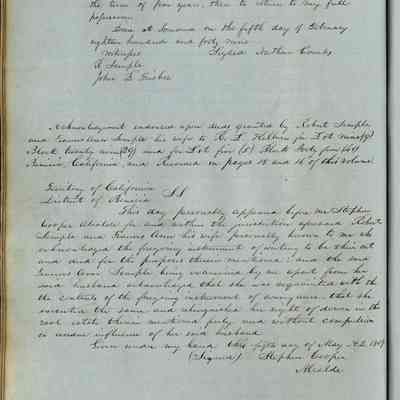 the term of four years, then to return to my full
possession
Done at Sonoma on the fifth day of February
eighteen hundred and forty nine
Witnesses Signed Nathan Coombs
R Semple
John
Acknowledgment endorsed upon deed granted by Robert Semple
and his wife to for Lot nine (9)
Block twenty nine (29) and for Lot five (5) Block forty four (44)
Benicia, California, and Recorded on pages 15 and 16 of this volume
Territory of California
District of Benicia SS
This day personally appeared before me Stephen
Cooper Alcalde for and within the jurisdiction aforesaid Robert
Semple and Ann his wife personally known to me who
acknowledged the foregoing instrument of writing to be their act
and deed for the purposes therein mentioned; and the said
Ann Semple being examined by me apart from her
said husband acknowledged that she was acquainted with
the contents of the foregoing instrument of conveyance that she
executed the same and relinquished her right of dower in the
real estate therein mentioned freely and without compulsion
or undue influence of her said husband
Given under my hand this fifth day of May A.D. 1849
(Signed) Stephen Cooper
Alcalde